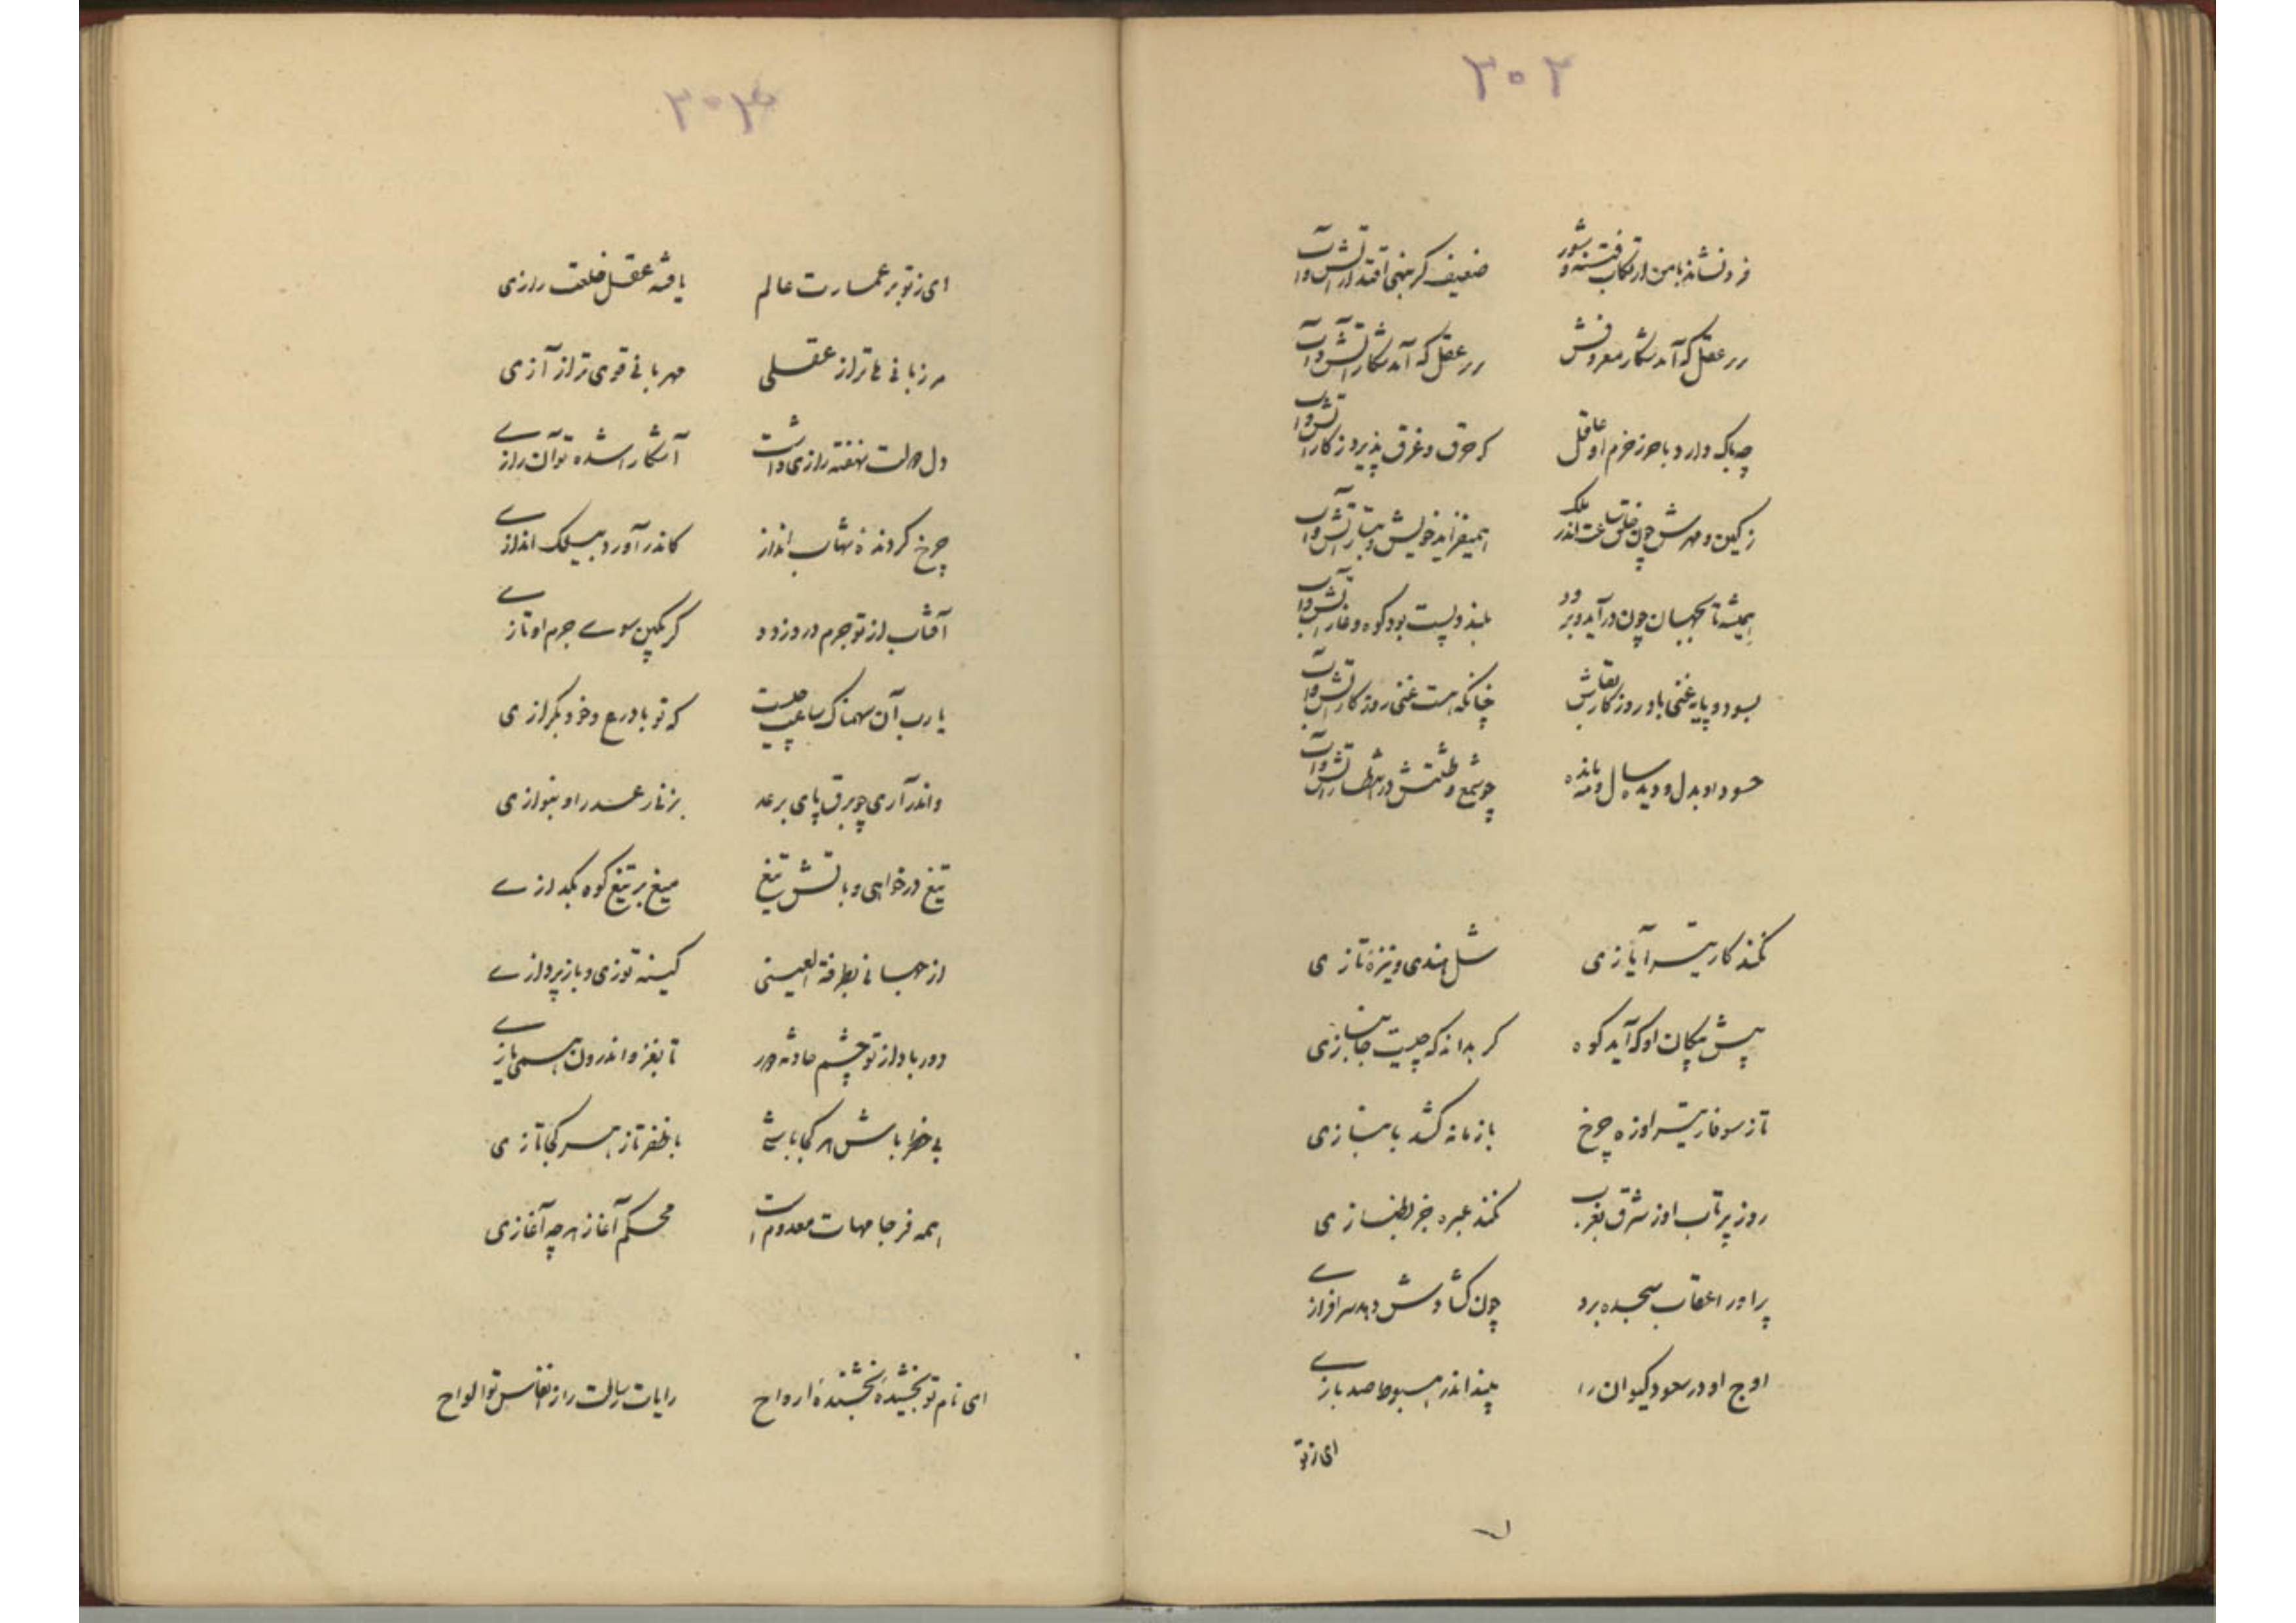 ۳۰۲
فرونشاند با من ارتکاب فتنه و شور ضعیف کر بنهی اقتدار آتش و آب
در عقل که آمد شکار معروفش در عقل که آمد شکار آتش و آب
چه باک دارد با حرز حزم او عاقل که حرق و غرق پذیرد ز کار آتش و آب
ز کین و مهرش چون خلق ملک اندر همیفزاید خویش و تبار آتش و آب
همیشه تا بجهان چون درآید و برود بلند و پست بود کوه و غار آتش و آب
بسود و پایه غنی باد روزگار بقاش چنانکه هست غنی روزگار آتش و آب
حسود او بدل و دیده سال و مه مانده چو شمع و طشتش در انتظار آتش و آب
نکند کار تیر آیازی شل هندی و نیزهٔ تازی
پیش پیکان او که آید کوه کر بداند که چیست جانبازی
تا ز سوفار تیر او زه چرخ با زمانه کشد بانبازی
روز پرتاب او ز شرق بغرب نکند عبره جز بطنازی
پر او را عقاب سجده برد چون کشادش دهد سرافرازی
اوج او در صعود کیوان را بیند اندر هبوط صد بازی
ای ز تو
۳۰۳
ای ز تو بر عمارت عالم یافته عقل خلعت رازی
مرزبانی نه‌تر از عقلی مهربانی قوی‌تر از آزی
دل دولت نهفته رازی داشت آشکارا شده تو آن رازی
چرخ کردندهٔ شهاب انداز کاندر آورد بیلک اندازی
آفتاب از تو جرم در دزدد کر بکین سوی جرم او تازی
یارب آن سهمناک ساعت چیست که تو با درع و خود بکرازی
واندر آری چو برق پای برعد بزنار عدر او بنوازی
تیغ درخواهی و بآتش تیغ میغ بر تیغ کوه بکدازی
از جهانی بطرفة العینی کینه توزی و باز پردازی
دور باد از تو چشم حادثه دور تا بغزو اندرون همی‌یازی
بی خطر باش هر کجا باشی با ظفر تاز هر کجا تازی
همه فرجامهات معدوم است محکم آغاز هر چه آغازی
ای نام تو بخشیدهٔ بخشندهٔ ارواح رایات رسالت را ز انفاس تو الواح